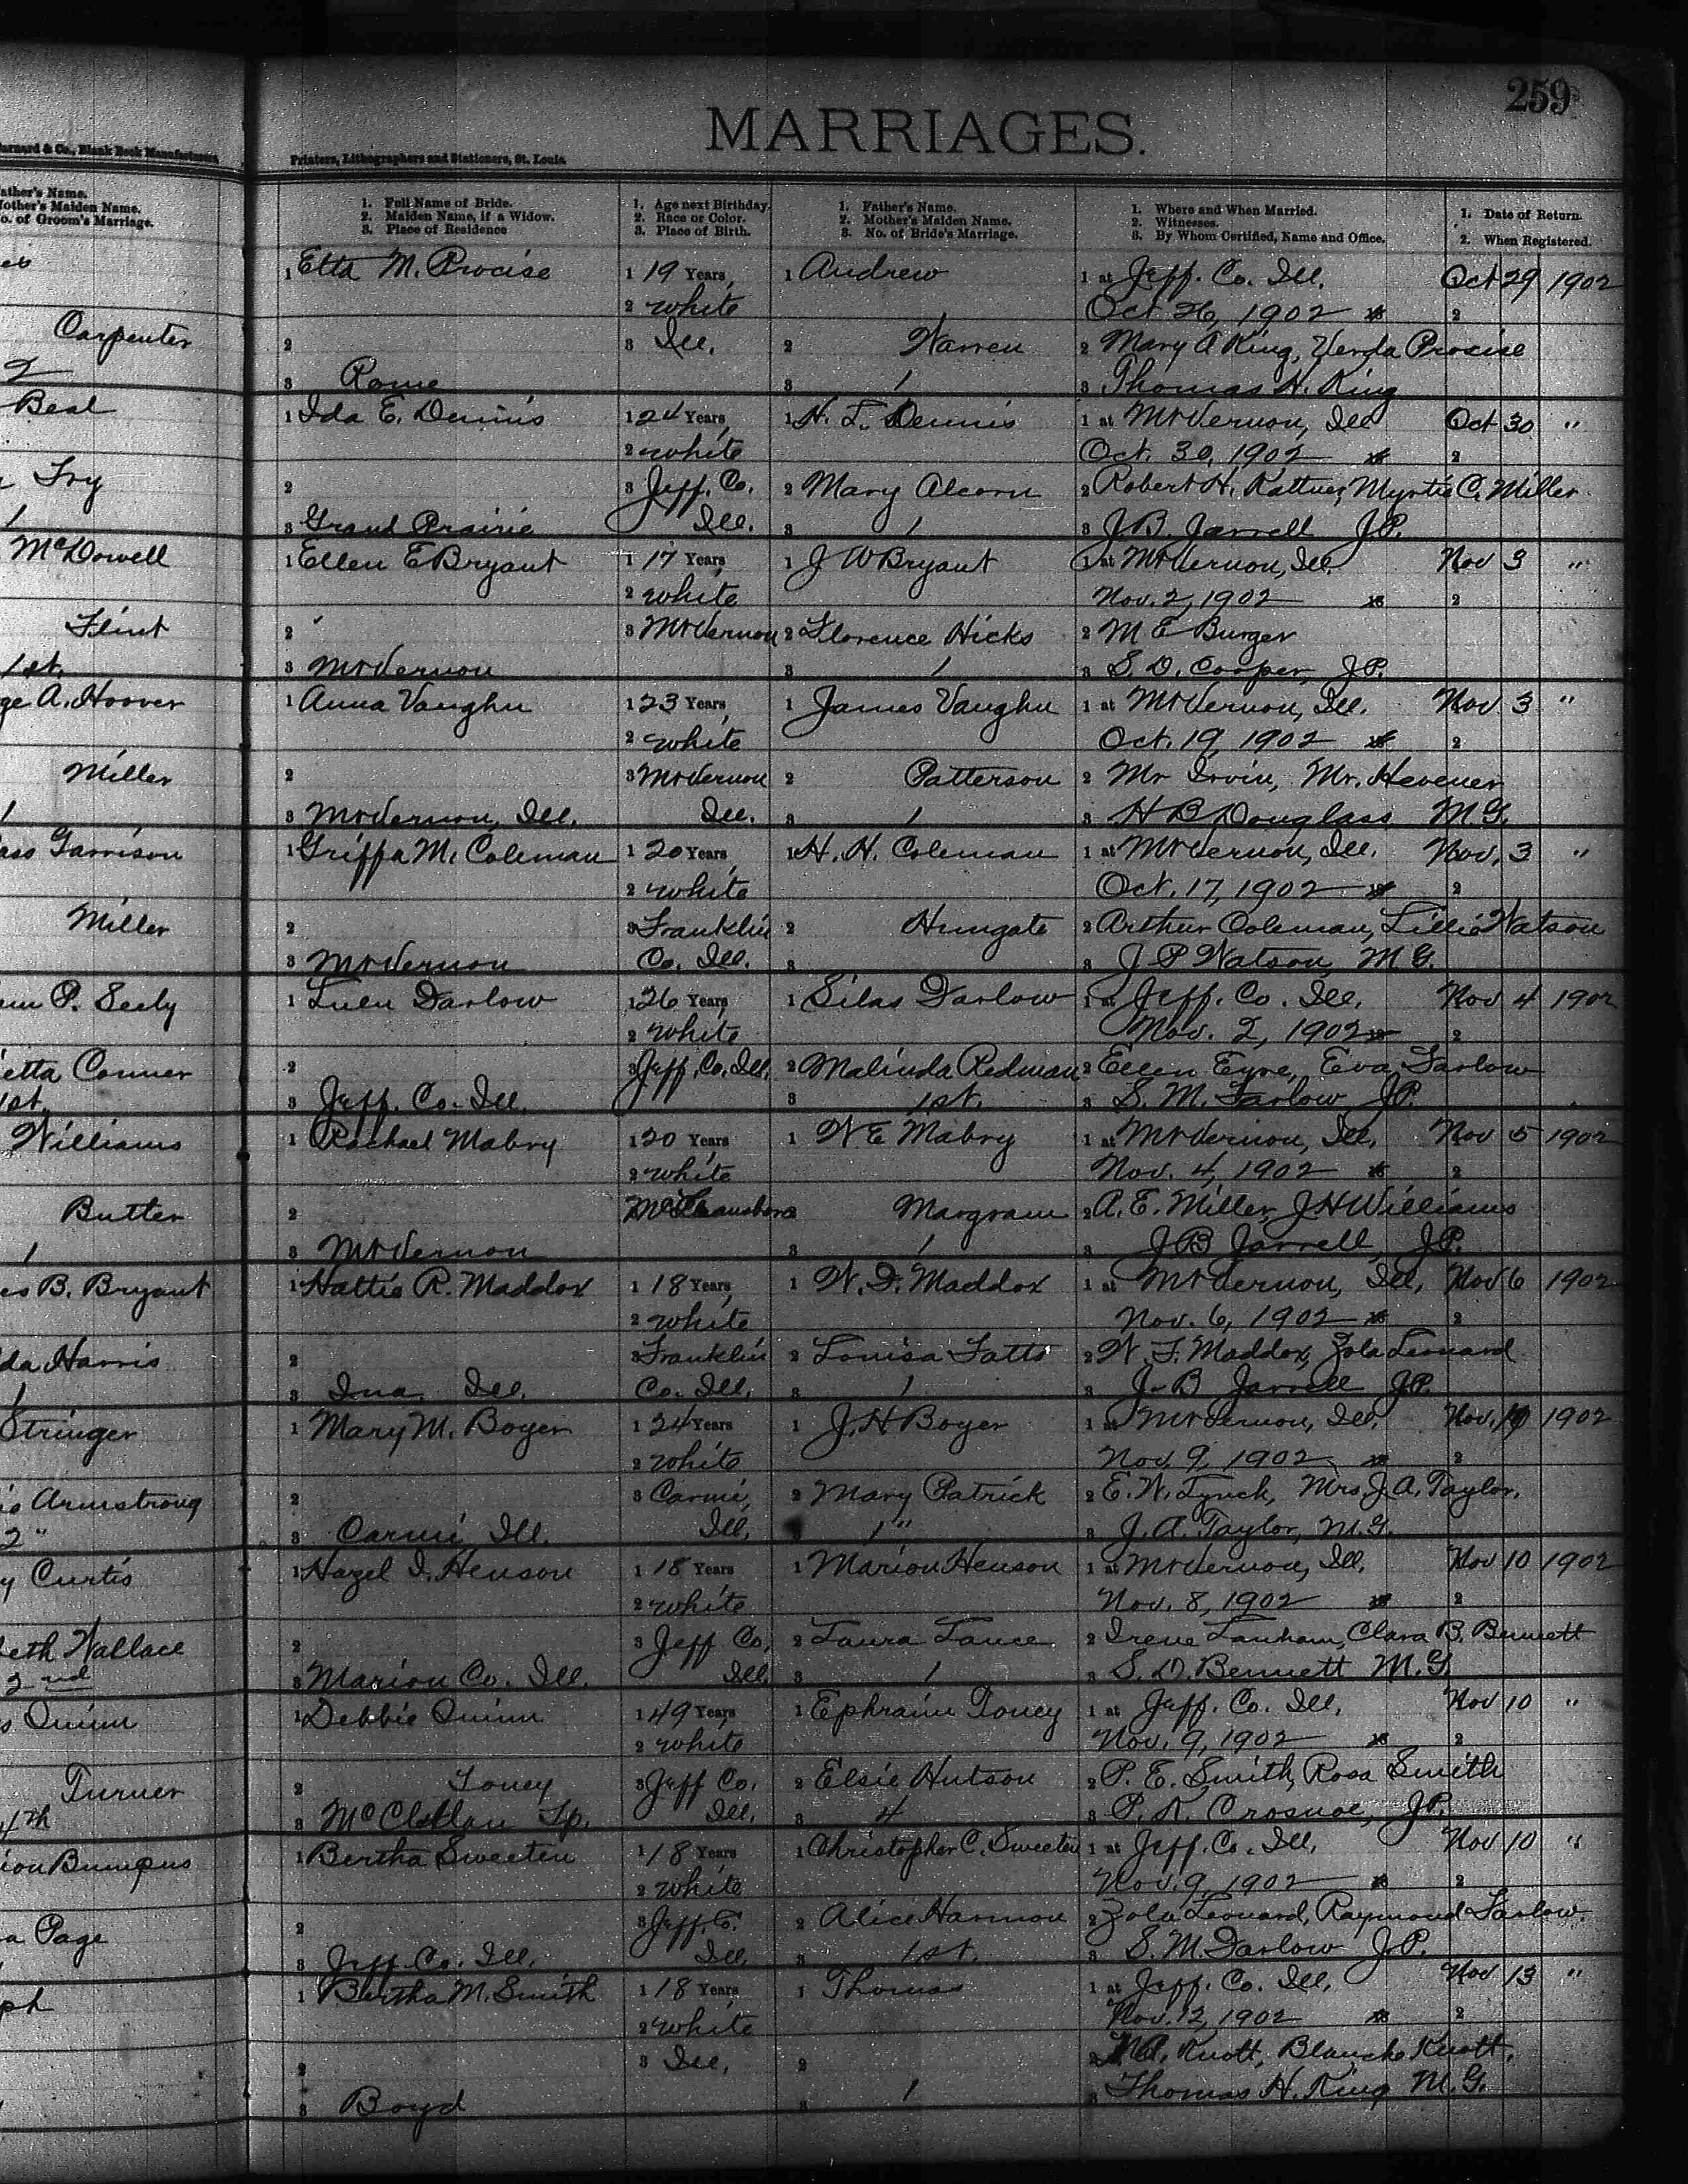 259
MARRIAGES.
arnard & Co., Blank Book Manufacturers,
Printers, Lithographers and Stationers, St. Louis.
ather's Name.
Mother's Maiden Name.
o. of Groom's Marriage.
1. Full Name of Bride.
2. Maiden Name, if a Widow.
3. Place of Residence
1. Age next Birthday.
2. Race or Color.
3. Place of Birth.
1. Father's Name.
2. Mother's Maiden Name.
3. No. of Bride's Marriage.
1. Where and When Married.
2. Witnesses.
3. By Whom Certified, Name and Office.
1. Date of Return.
2. When Registered.
1 Etta M. Procise 1 19 Years, 1 Andrew 1 at Jeff. Co. Ill. Oct 29 1902
2 white Oct. 26, 1902 2
Carpenter 2 3 Ill. 2 Warren 2 Mary A King, Verda Procise
2 3 Rome 3 1 3 Thomas H. King
Beal 1 Ida E. Dennis 1 24 Years, 1 H. L. Dennis 1 at Mt Vernon, Ill Oct 30 "
2 white Oct. 30, 1902 2
Fry 2 3 Jeff. Co. 2 Mary Alcorn 2 Robert H. Myrtie C. Miller
1 3 Grand Prairie Ill. 3 1 3 J. B. Jarrell J.P.
McDowell 1 Ellen E Bryant 1 17 Years 1 J W Bryant 1 at Mt Vernon, Ill. Nov 3 "
2 white Nov. 2, 1902 2
Flint 2 3 Mt Vernon 2 Florence Hicks 2 M E Burger
1st. 3 Mt Vernon 3 1 3 S. D. Cooper, J.P.
ge A. Hoover 1 Anna Vaughn 1 23 Years, 1 James Vaughn 1 at Mt Vernon, Ill. Nov. 3 "
2 white Oct. 19, 1902 2
Miller 2 3 Mt Vernon 2 Patterson 2 Mr Irvin, Mr. Hevener
1 3 Mt Vernon, Ill. Ill. 3 1 3 H B Douglass M.G.
ass Garrison 1 Griffa M. Coleman 1 20 Years, 1 H. H. Coleman 1 at Mt Vernon, Ill. Nov. 3 "
2 white Oct. 17, 1902 2
Miller 2 3 Franklin 2 Hungate 2 Arthur Coleman, Lillie Watson
3 Mt Vernon Co. Ill. 3 3 J P Watson, M.G.
P. Seely 1 Darlow 1 26 Years 1 Silas Darlow 1 at Jeff. Co. Ill. Nov 4 1902
2 white Nov. 2, 1902 2
etta Conner 2 3 Jeff. Co. Ill. 2 Malinda Redman 2 Ellen Eyre, Eva Farlow
1st. 3 Jeff. Co. Ill. 3 1st. 3 S. M. Farlow J.P.
Williams 1 Rachael Mabry 1 20 Years 1 W E Mabry 1 at Mt Vernon, Ill. Nov 5 1902
2 white Nov. 4, 1902 2
Butter 2 Margram 2 A. E. Miller, J H Williams
1 3 Mt Vernon 3 1 3 J B Jarrell, J.P.
es B. Bryant 1 Hattie R. Maddox 1 18 Years, 1 W. D. Maddox 1 at Mt Vernon, Ill, Nov 6 1902
2 white Nov. 6, 1902 2
da Harris 2 3 Franklin 2 Louisa Fatts 2 W. F. Maddox, Zola Leonard
1 3 Ina Ill. Co. Ill. 3 1 3 J. B Jarrell J.P.
Stringer 1 Mary M. Boyer 1 24 Years 1 J. H Boyer 1 at Mt Vernon, Ill. Nov. 10 1902
2 white Nov. 9, 1902 2
Armstrong 2 3 Carmi, 2 Mary Patrick 2 E. W. Lynch, Mrs. J. A. Taylor.
2 " 3 Carmi Ill. Ill. 1 " 3 J. A. Taylor, M.G.
y Curtis 1 Hazel I. Henson 1 18 Years 1 Marion Henson 1 at Mt Vernon, Ill. Nov 10 1902
2 white Nov. 8, 1902 2
beth Wallace 2 3 Jeff Co, 2 Laura Lance 2 Irene Lanham, Clara B. Bennett
2nd 3 Marion Co. Ill. Ill. 3 1 3 S. D. Bennett M.G.
s Quinn 1 Debbie Quinn 1 49 Years, 1 Ephraim Toney 1 at Jeff. Co. Ill. Nov 10 "
2 white Nov. 9, 1902 2
Turner 2 Toney 3 Jeff Co. 2 Elsie Hutson 2 P. E. Smith, Rosa Smith
4th 3 McClellan Tp. Ill. 3 4 3 P. R. Crosnoe, J.P.
ion Bumpus 1 Bertha Sweeten 1 18 Years 1 Christopher C. Sweeten 1 at Jeff. Co. Ill. Nov 10 "
2 white Nov. 9, 1902 2
a Page 2 3 Jeff. Co. 2 Alice Harmon 2 Zola Leonard, Raymond Farlow
3 Jeff Co. Ill. Ill. 3 1st. 3 S. M. Darlow J.P.
ph 1 Bertha M. Smith 1 18 Years 1 Thomas 1 at Jeff. Co. Ill. Nov 13 "
2 white Nov. 12, 1902 2
2 3 Ill. 2 2 Knott, Blanche Knott,
3 Boyd 3 1 3 Thomas H. King M.G.